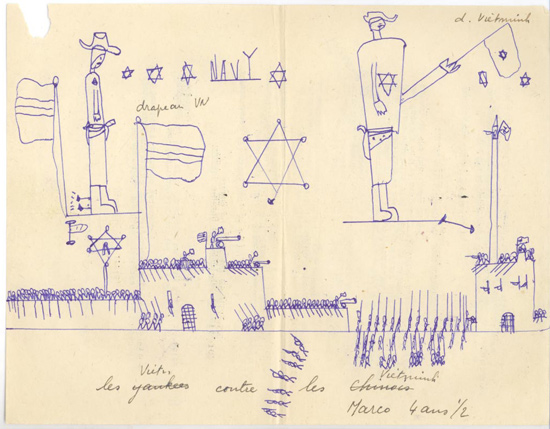 d. Viêtminh
NAVY
drapeau VN
Viêtn
Viêtminh
les yankees contre les chinois
Marco 4 ans ½